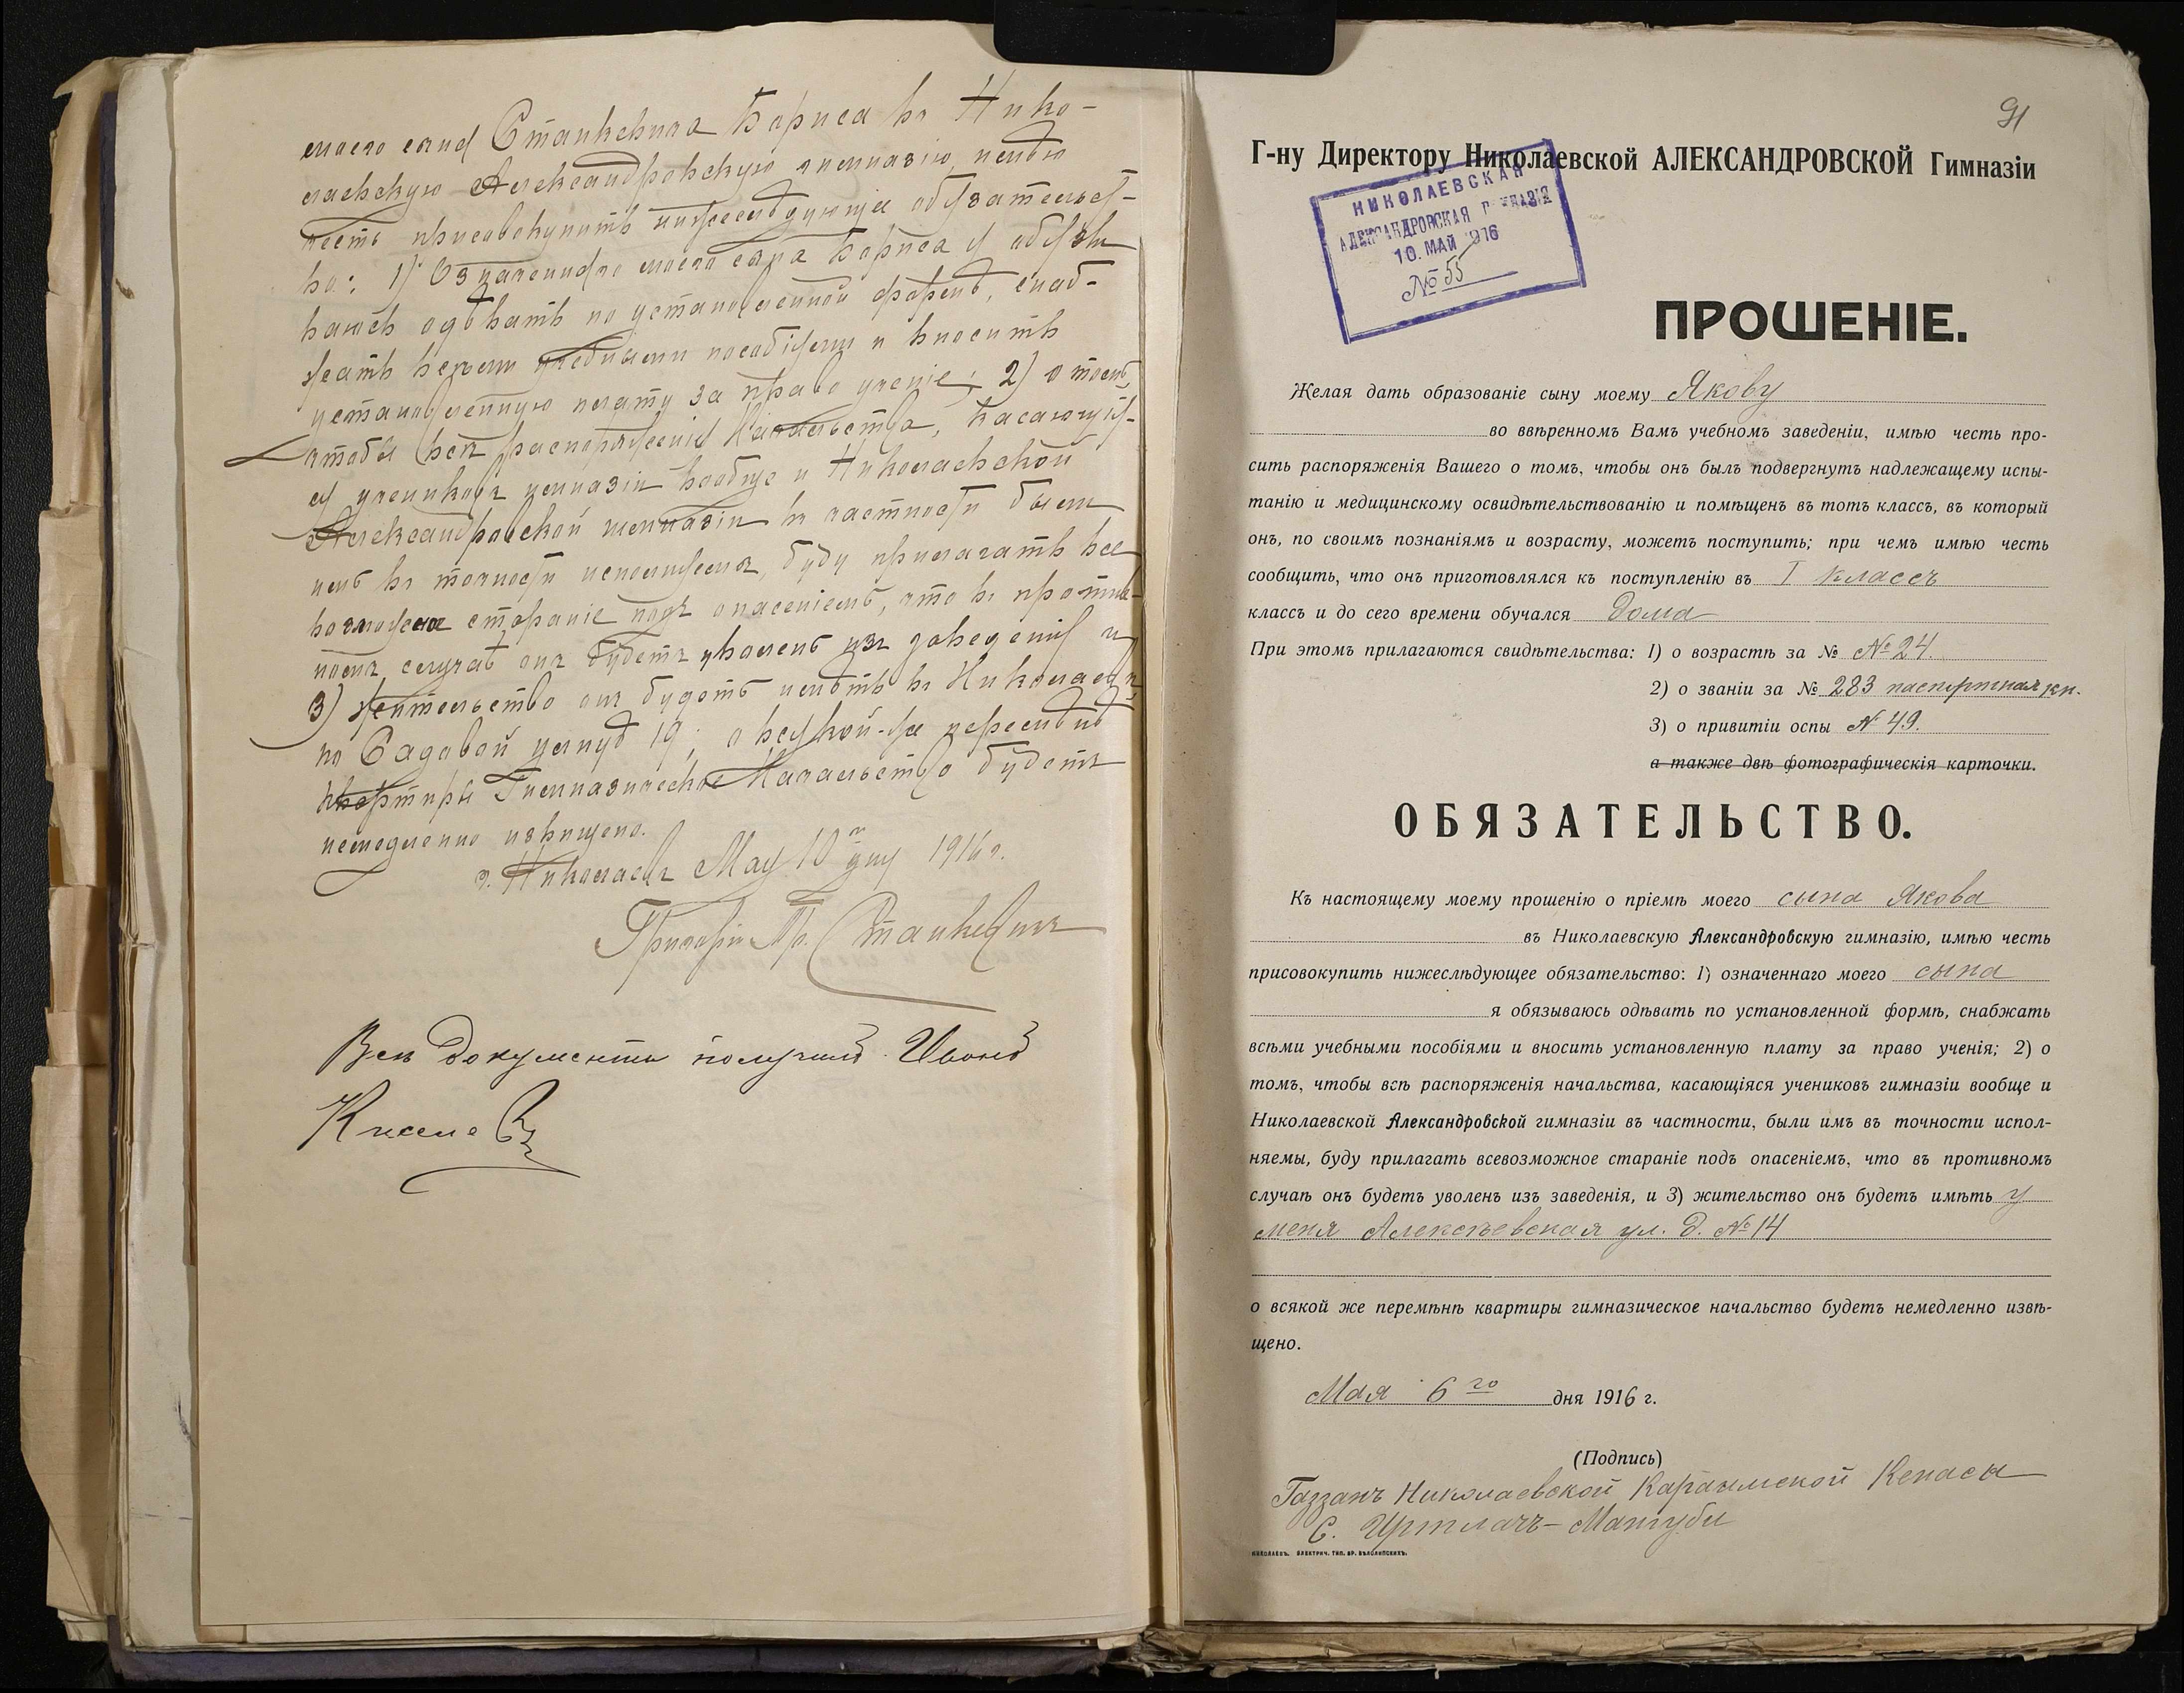 моего сына Станкевича Бориса въ Нико-
лаевскую Александровскую гимназію, имѣю
честь присовокупить нижеслѣдующія обязательст-
во: 1) Означеннаго моего сына Бориса я обязы
ваюсь одѣвать по установленной формѣ, снаб-
жать всѣми учебными пособіями и вносить
установленную плату за право ученіе; 2) о томъ,
чтобы всѣ распоряженія Начальства, касающія-
ся учениковъ гимназіи вообще и Николаевской
Александровской гимназіи въ частности были
имъ въ точности исполняемы, буду прилагать все
возможное стараніе подъ опасеніемъ, что въ против-
номъ случаѣ онъ будетъ уволенъ изъ заведенія и
3) жительство онъ будетъ имѣть въ Николаевѣ,
по Садовой улицѣ 19; о всякой-же перемѣнѣ
квартиры Гимназическое Начальство будетъ
немедленно извѣщено.
г. Николаевъ Мая 10 дня 1916 г.
Григорій Гр. Станкевичъ
Всѣ документы получилъ
Киселевъ
91
Г-ну Директору Николаевской АЛЕКСАНДРОВСКОЙ Гимназіи
НИКОЛАЕВСКАЯ
АЛЕКСАНДРОВСКАЯ ГИМНАЗІЯ
10. МАЙ 1916
№ 55
ПРОШЕНІЕ.
Желая дать образованіе сыну моему Якову
во ввѣренномъ Вамъ учебномъ заведеніи, имѣю честь про-
сить распоряженія Вашего о томъ, чтобы онъ былъ подвергнутъ надлежащему испы-
танію и медицинскому освидѣтельствованію и помѣщенъ въ тотъ классъ, въ который
онъ, по своимъ познаніямъ и возрасту, можетъ поступить; при чемъ имѣю честь
сообщить, что онъ приготовлялся къ поступленію въ I классъ
классъ и до сего времени обучался дома
При этомъ прилагаются свидѣтельства: 1) о возрастѣ за № № 24.
2) о званіи за № 283 паспортная кн.
3) о привитіи оспы № 49.
а также двѣ фотографическія карточки.
ОБЯЗАТЕЛЬСТВО.
Къ настоящему моему прошенію о пріемѣ моего сына Якова
въ Николаевскую Александровскую гимназію, имѣю честь
присовокупить нижеслѣдующее обязательство: 1) означеннаго моего сына
я обязываюсь одѣвать по установленной формѣ, снабжать
всѣми учебными пособіями и вносить установленную плату за право ученія; 2) о
томъ, чтобы всѣ распоряженія начальства, касающіяся учениковъ гимназіи вообще и
Николаевской Александровской гимназіи въ частности, были имъ въ точности испол-
няемы, буду прилагать всевозможное стараніе подъ опасеніемъ, что въ противномъ
случаѣ онъ будетъ уволенъ изъ заведенія, и 3) жительство онъ будетъ имѣть у
меня Алексѣевская ул. д. № 14
о всякой же перемѣнѣ квартиры гимназическое начальство будетъ немедленно извѣ-
щено.
Мая 6 го дня 1916 г.
(Подпись)
Газзанъ Николаевской Караимской Кенасы
С. Иртлачъ-Мангуби
НИКОЛАЕВЪ. ЭЛЕКТРИЧ. ТИП. БР. БѢЛОЛИПСКИХЪ.